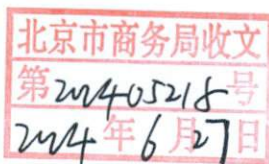 北京市商务局收文
第202405218号
2024年6月27日